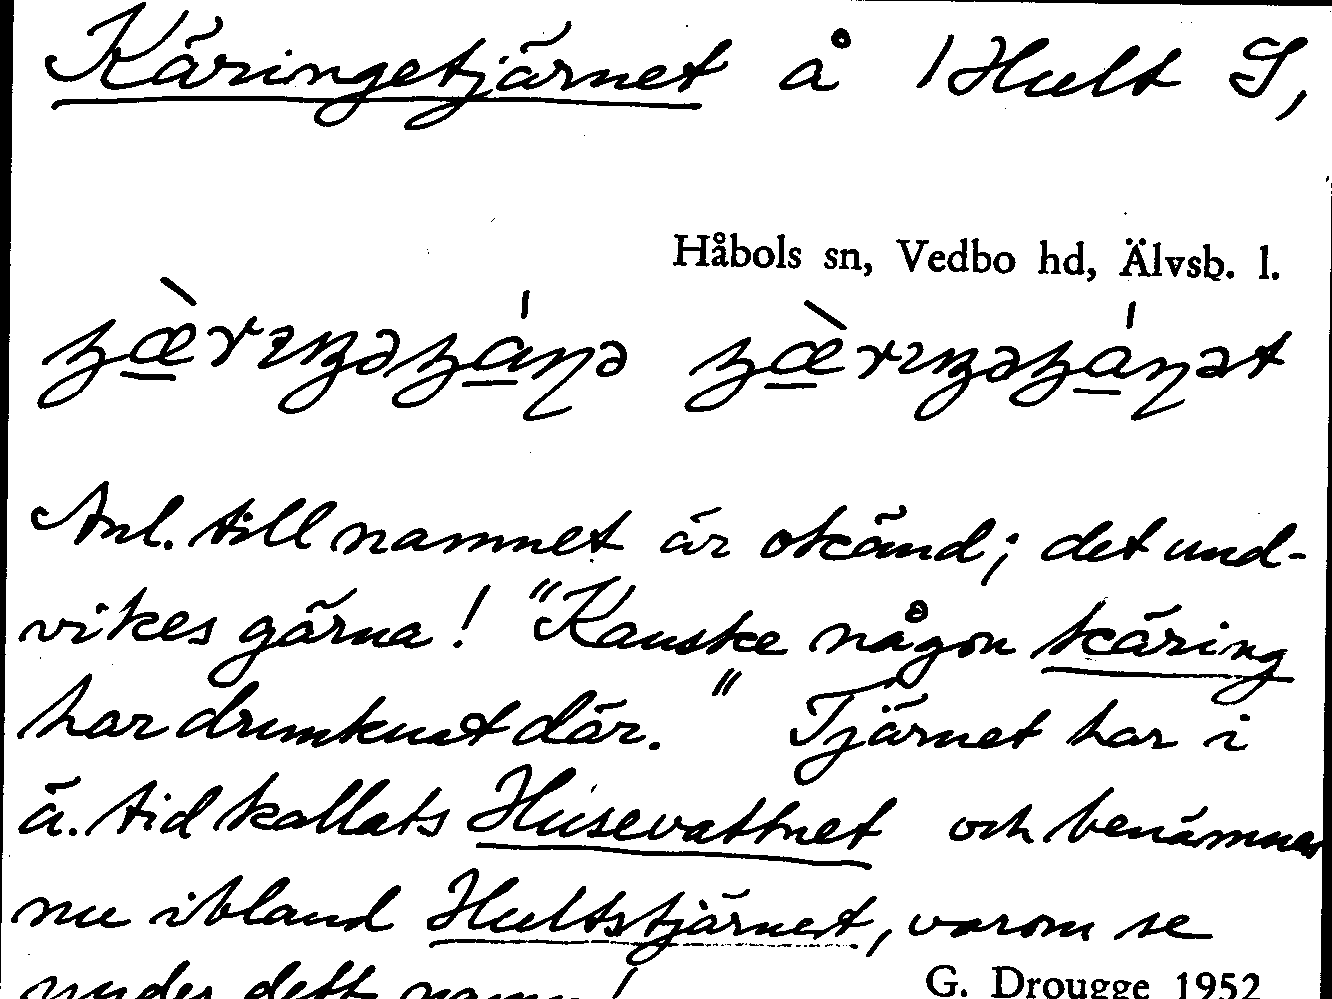 Käringetjärnet å 1 Hult S,
Håbols sn, Vedbo hd, Älvsb. l.
Anl. till namnet är okänd; det und-
vikes gärna! "Kanske någon käring
har drunknat där." Tjärnet har i
ä. tid kallats Husevattnet och benämnes
nu ibland Hultstjärnet, varom se
under detta namn!
G. Drougge 1952